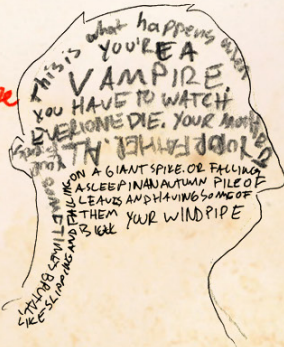 This is what happens when
YOU'RE A
VAMPIRE.
YOU HAVE TO WATCH
EVERYONE DIE. YOUR MOTHER
YOUR FATHER. ALL
YOUR
SOMETIMES BRUTAL
LIKE SLIPPING AND FALLING
ON A GIANT SPIKE. OR FALLING
ASLEEP IN AN AUTUMN PILE OF
LEAVES AND HAVING SOME OF
THEM BLOCK YOUR WINDPIPE